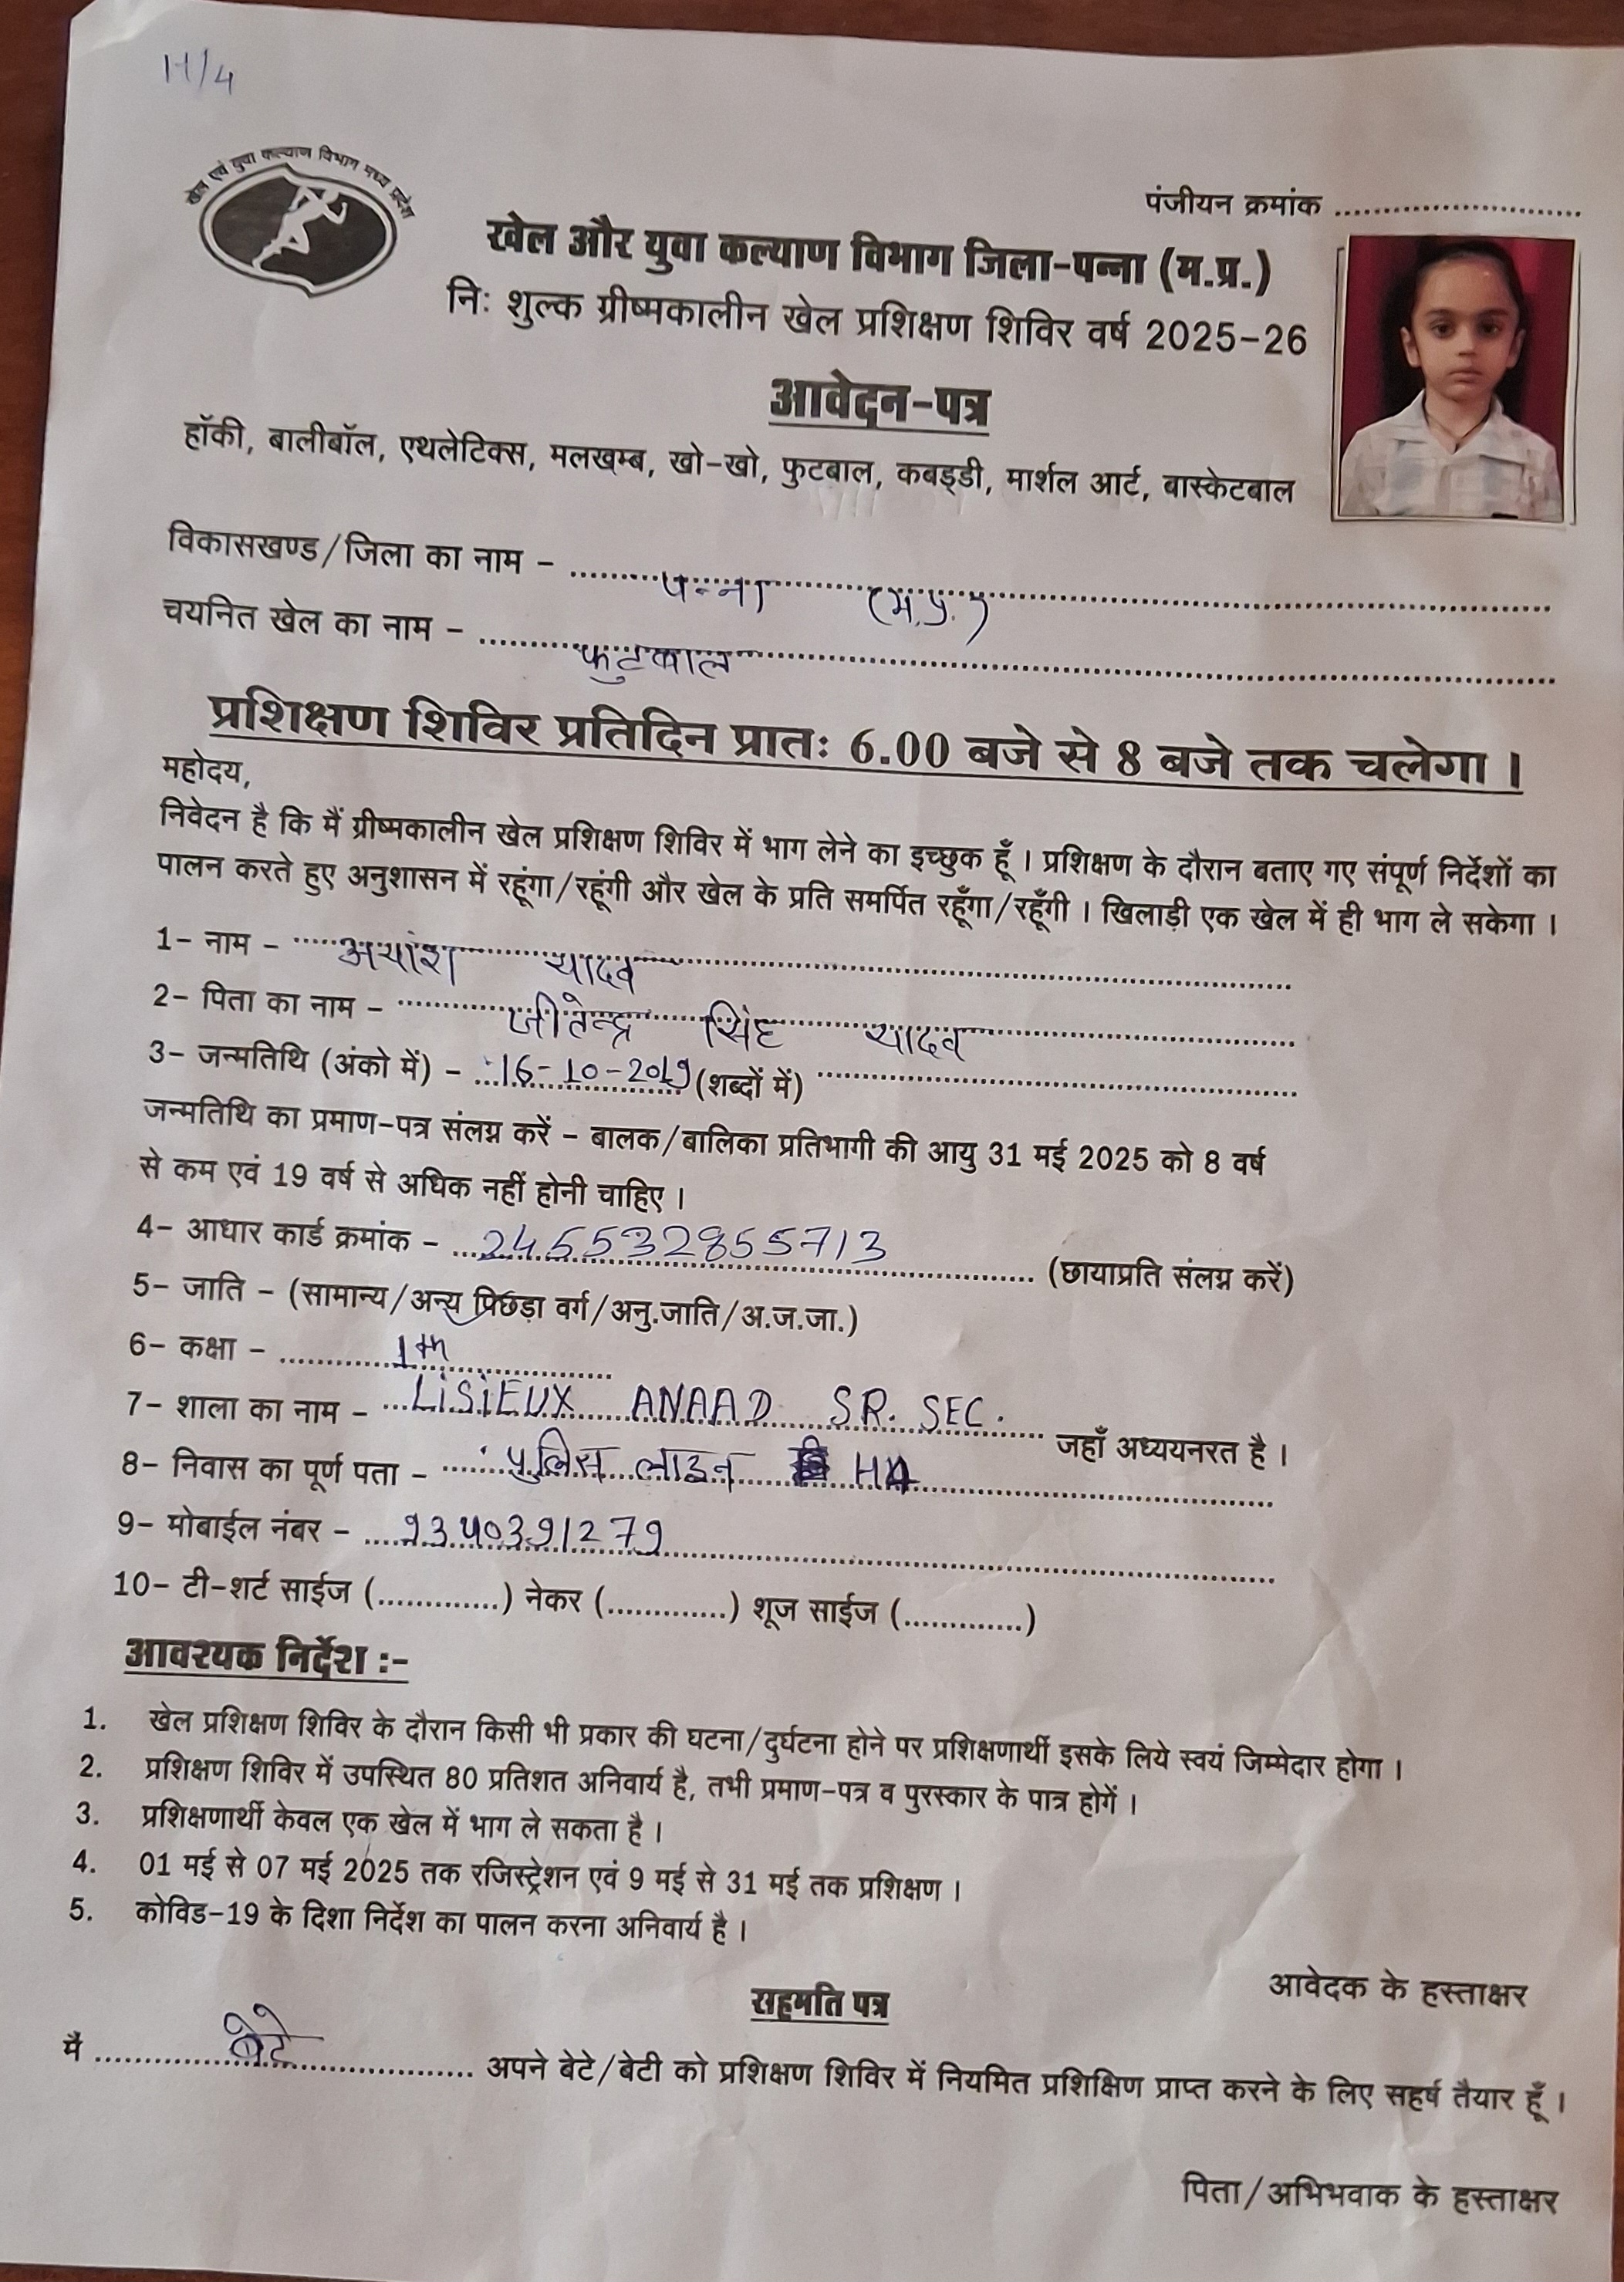 H/4
खेल एवं युवा कल्याण विभाग मध्य प्रदेश
पंजीयन क्रमांक ..........................
खेल और युवा कल्याण विभाग जिला-पन्ना (म.प्र.)
निः शुल्क ग्रीष्मकालीन खेल प्रशिक्षण शिविर वर्ष 2025-26
आवेदन-पत्र
हॉकी, बालीबॉल, एथलेटिक्स, मलखम्ब, खो-खो, फुटबाल, कबड्डी, मार्शल आर्ट, बास्केटबाल
विकासखण्ड/जिला का नाम - पन्ना (म.प्र.)
चयनित खेल का नाम - फुटबाल
प्रशिक्षण शिविर प्रतिदिन प्रातः 6.00 बजे से 8 बजे तक चलेगा ।
महोदय,
निवेदन है कि मैं ग्रीष्मकालीन खेल प्रशिक्षण शिविर में भाग लेने का इच्छुक हूँ । प्रशिक्षण के दौरान बताए गए संपूर्ण निर्देशों का
पालन करते हुए अनुशासन में रहूंगा/रहूंगी और खेल के प्रति समर्पित रहूँगा/रहूँगी । खिलाड़ी एक खेल में ही भाग ले सकेगा ।
1- नाम - अयांश यादव
2- पिता का नाम - जीतेन्द्र सिंह यादव
3- जन्मतिथि (अंको में) - 16-10-2019 (शब्दों में) ..........................
जन्मतिथि का प्रमाण-पत्र संलग्न करें - बालक/बालिका प्रतिभागी की आयु 31 मई 2025 को 8 वर्ष
से कम एवं 19 वर्ष से अधिक नहीं होनी चाहिए ।
4- आधार कार्ड क्रमांक - 245532855713 (छायाप्रति संलग्न करें)
5- जाति - (सामान्य/अन्य पिछड़ा वर्ग/अनु.जाति/अ.ज.जा.)
6- कक्षा - 1th
7- शाला का नाम - LiSiEUX ANAAD SR. SEC. जहाँ अध्ययनरत है ।
8- निवास का पूर्ण पता - पुलिस लाइन H4
9- मोबाईल नंबर - 9340391279
10- टी-शर्ट साईज (.............) नेकर (.............) शूज साईज (.............)
आवश्यक निर्देश :-
1. खेल प्रशिक्षण शिविर के दौरान किसी भी प्रकार की घटना/दुर्घटना होने पर प्रशिक्षणार्थी इसके लिये स्वयं जिम्मेदार होगा ।
2. प्रशिक्षण शिविर में उपस्थित 80 प्रतिशत अनिवार्य है, तभी प्रमाण-पत्र व पुरस्कार के पात्र होगें ।
3. प्रशिक्षणार्थी केवल एक खेल में भाग ले सकता है ।
4. 01 मई से 07 मई 2025 तक रजिस्ट्रेशन एवं 9 मई से 31 मई तक प्रशिक्षण ।
5. कोविड-19 के दिशा निर्देश का पालन करना अनिवार्य है ।
आवेदक के हस्ताक्षर
सहमति पत्र
मै बेटे अपने बेटे/बेटी को प्रशिक्षण शिविर में नियमित प्रशिक्षिण प्राप्त करने के लिए सहर्ष तैयार हूँ ।
पिता/अभिभवाक के हस्ताक्षर